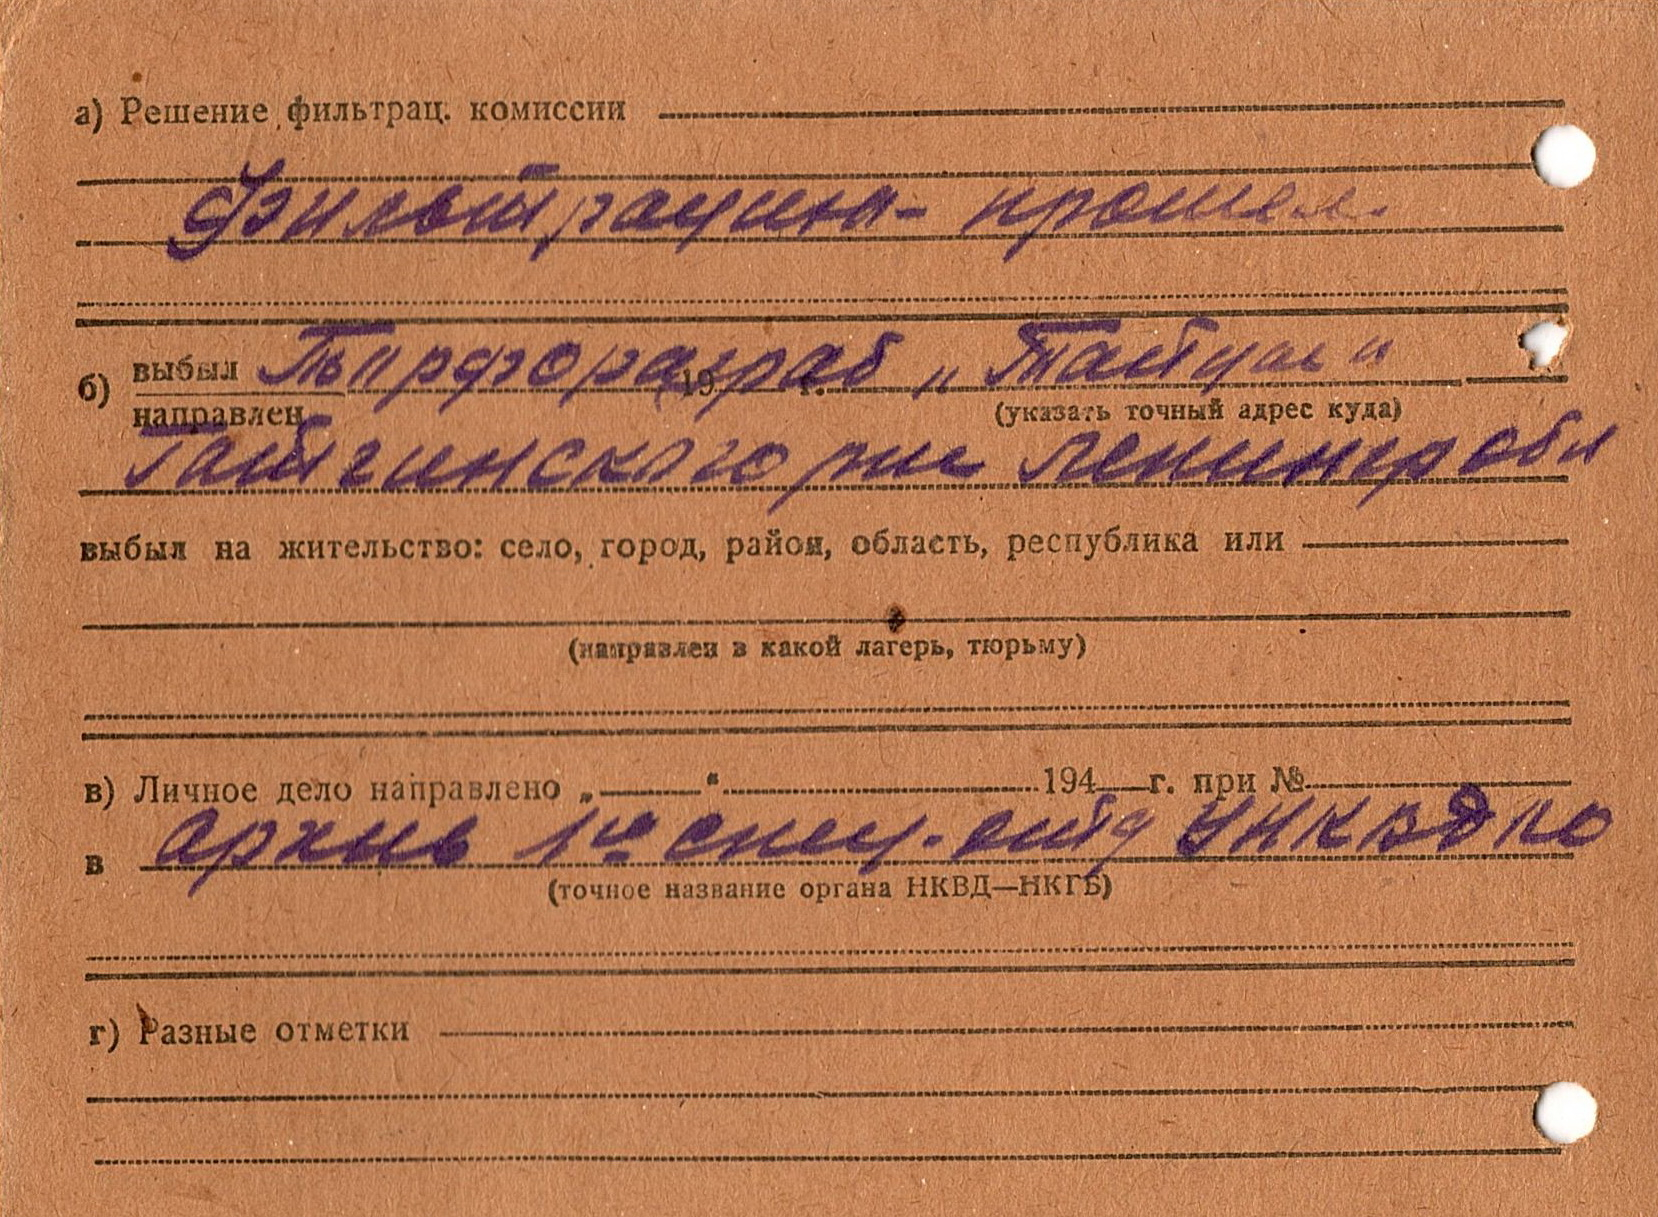 а) Решение фильтрац. комиссии
Фильтрацию - прошел.
б) выбыл
направлен 19 г.
(указать точный адрес куда)
Ленингр обл
выбыл на жительство: село, город, район, область, республика или
(направлен в какой лагерь, тюрьму)
в) Личное дело направлено „ “ 194 г. при №
в архив 1го спец. отд УНКВД ЛО
(точное название органа НКВД—НКГБ)
г) Разные отметки